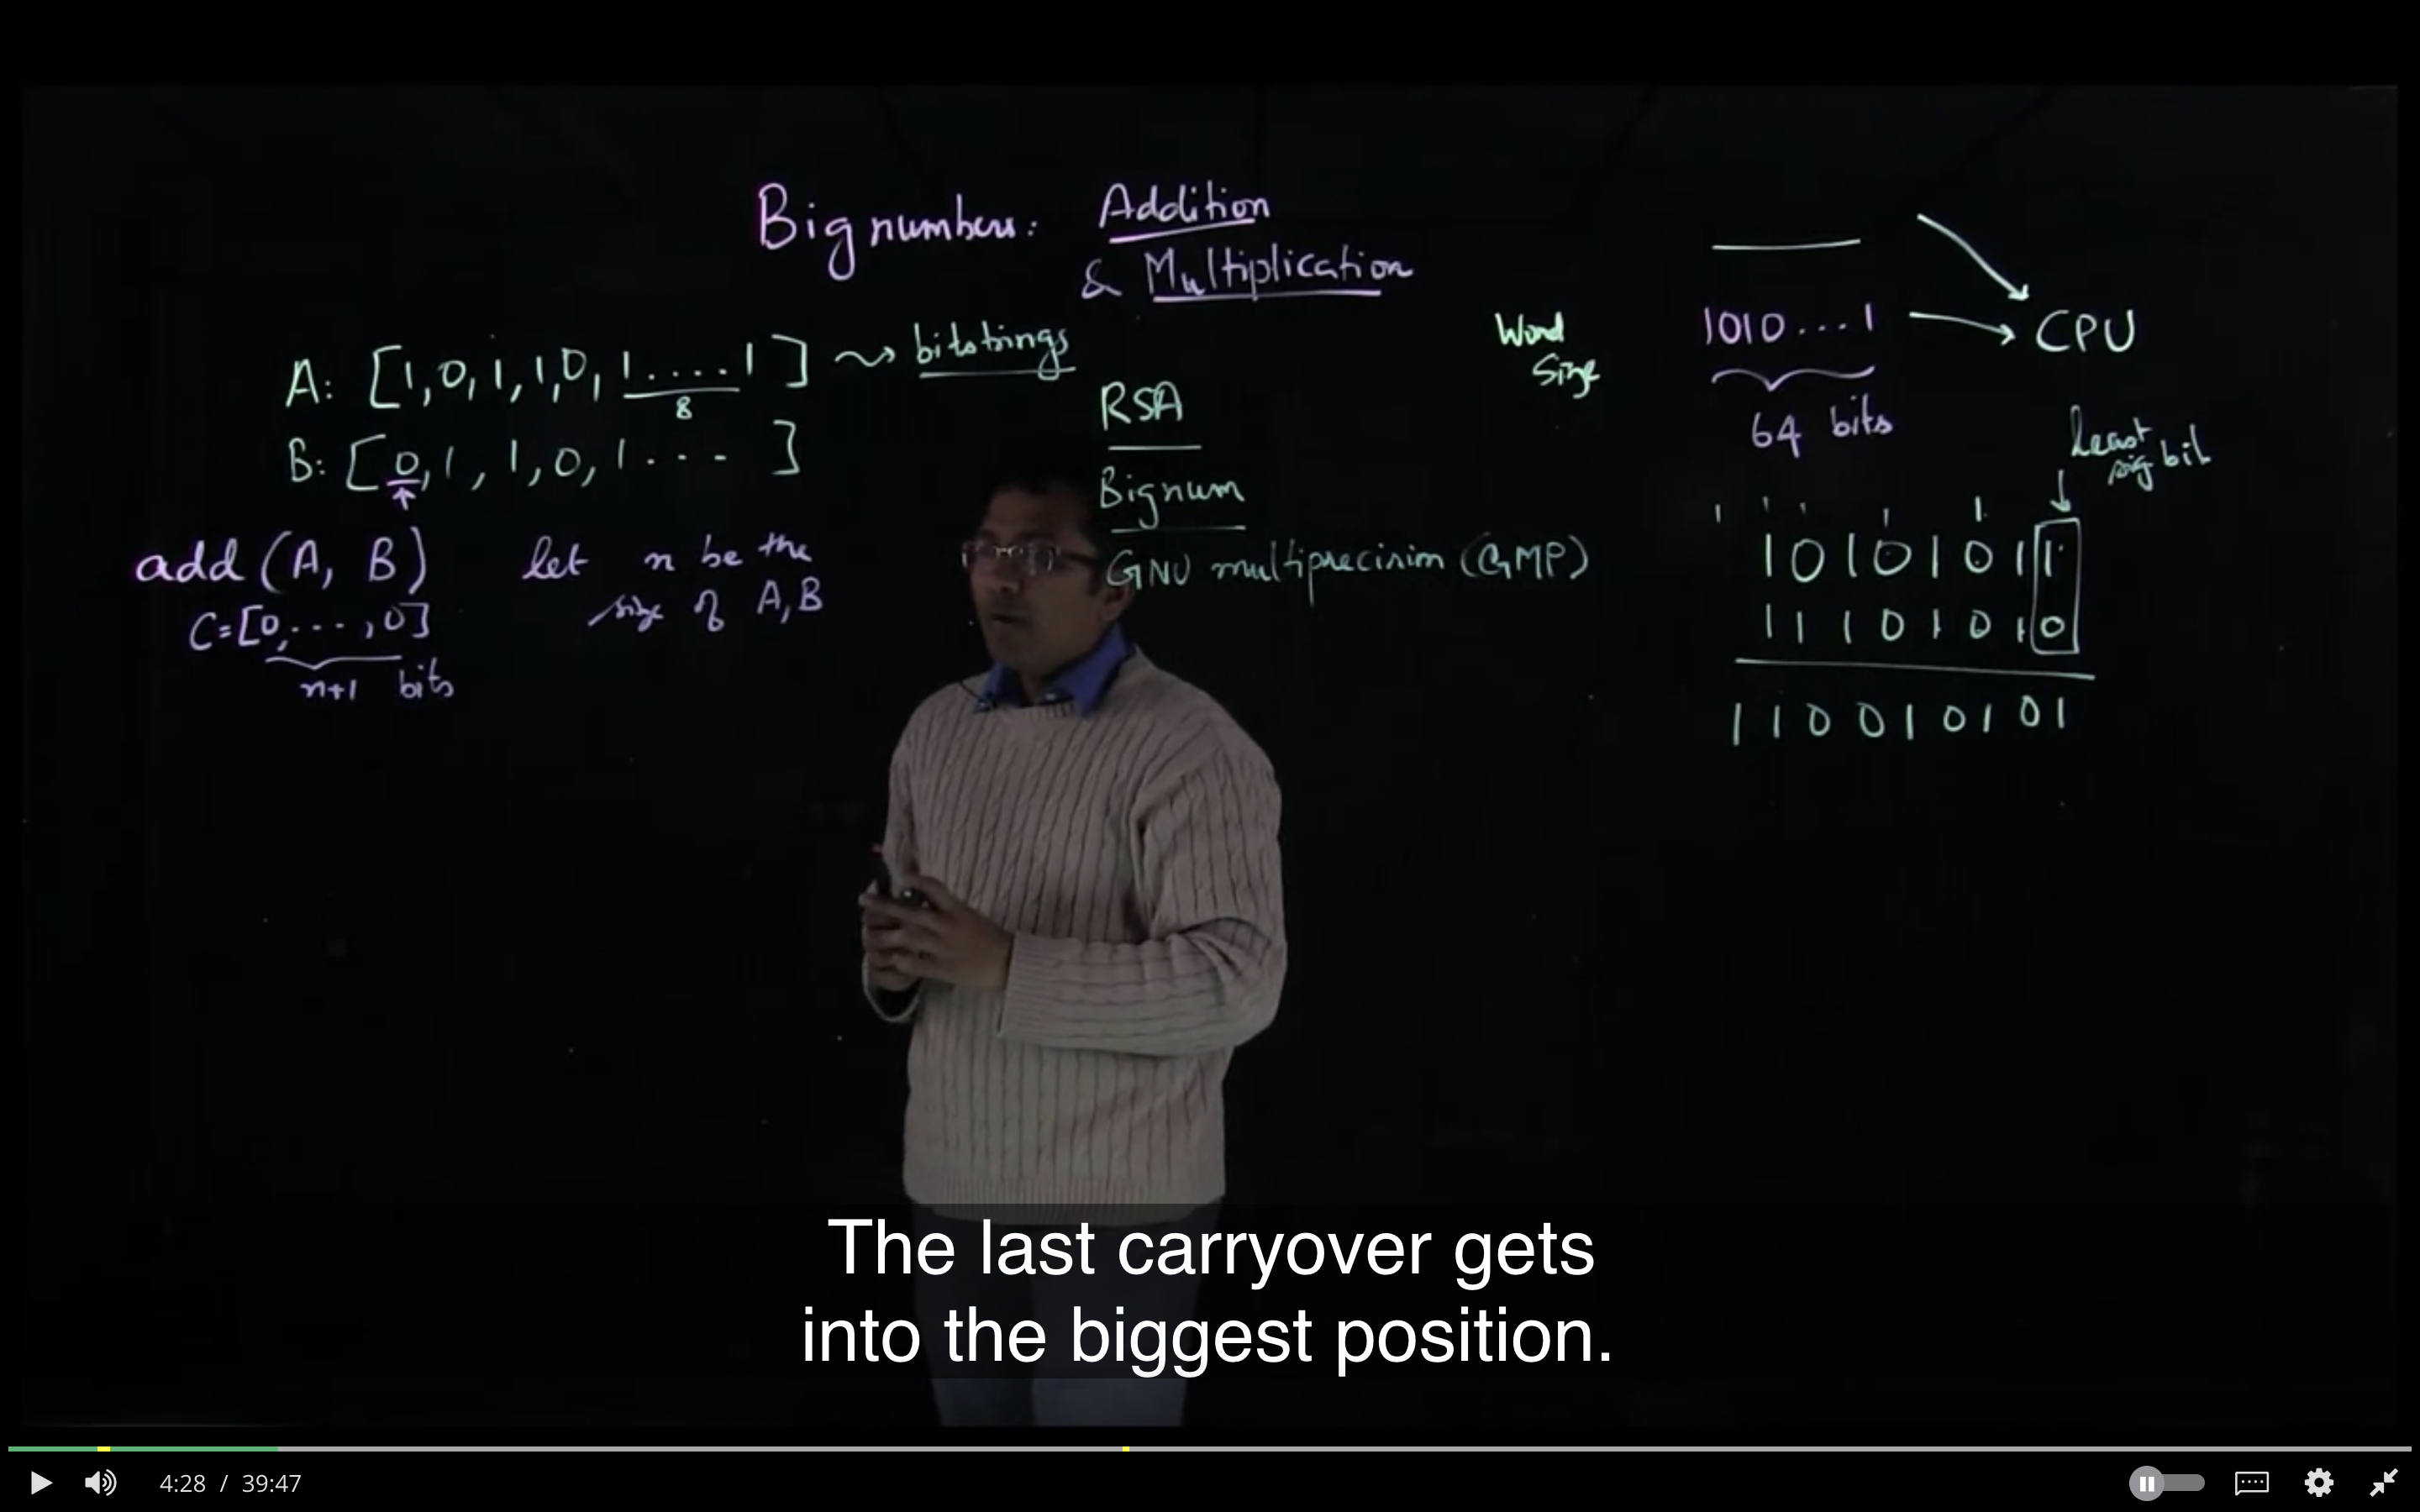 Big numbers: Addition
& Multiplication
A: [1,0,1,1,0,1....1] ⤳ bitstrings
8
B: [0,1,1,0,1... ]
↑
add (A, B)
C=[0,...,0]
n+1 bits
let n be the
size of A,B
RSA
Bignum
GNU multiprecision (GMP)
Word
Size
1010...1 → CPU
64 bits
least
sig bit
↓
1 1 1 1 1
1 0 1 0 1 0 1 1
1 1 1 0 1 0 1 0
1 1 0 0 1 0 1 0 1
The last carryover gets
into the biggest position.
4:28 / 39:47